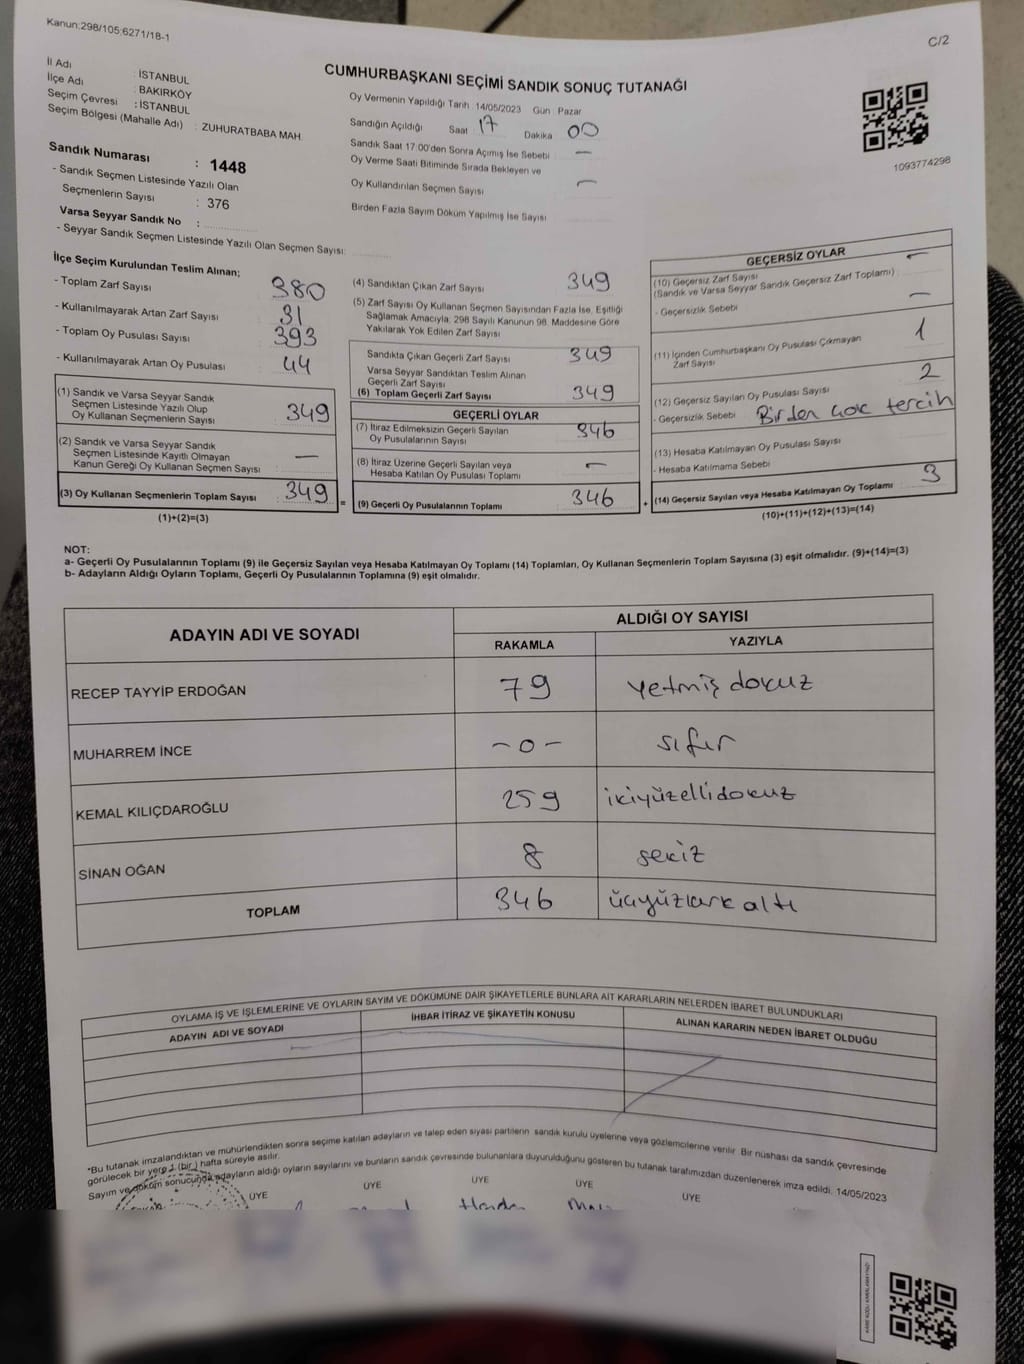 Kanun:298/105;6271/18-1
C/2
İl Adı : İSTANBUL
İlçe Adı : BAKIRKÖY
Seçim Çevresi : İSTANBUL
Seçim Bölgesi (Mahalle Adı) : ZUHURATBABA MAH.
Sandık Numarası : 1448
- Sandık Seçmen Listesinde Yazılı Olan
Seçmenlerin Sayısı : 376
Varsa Seyyar Sandık No :
- Seyyar Sandık Seçmen Listesinde Yazılı Olan Seçmen Sayısı:
CUMHURBAŞKANI SEÇİMİ SANDIK SONUÇ TUTANAĞI
Oy Vermenin Yapıldığı Tarih : 14/05/2023 Gün : Pazar
Sandığın Açıldığı Saat 17 Dakika 00
Sandık Saat 17:00'den Sonra Açmış İse Sebebi : —
Oy Verme Saati Bitiminde Sırada Bekleyen ve
Oy Kullandırılan Seçmen Sayısı —
Birden Fazla Sayım Döküm Yapılmış İse Sayısı
1093774298
İlçe Seçim Kurulundan Teslim Alınan;
- Toplam Zarf Sayısı 380
- Kullanılmayarak Artan Zarf Sayısı : 31
- Toplam Oy Pusulası Sayısı : 393
- Kullanılmayarak Artan Oy Pusulası : 44
(1) Sandık ve Varsa Seyyar Sandık
Seçmen Listesinde Yazılı Olup
Oy Kullanan Seçmenlerin Sayısı : 349
(2) Sandık ve Varsa Seyyar Sandık
Seçmen Listesinde Kayıtlı Olmayan
Kanun Gereği Oy Kullanan Seçmen Sayısı : —
(3) Oy Kullanan Seçmenlerin Toplam Sayısı : 349 =
(1)+(2)=(3)
(4) Sandıktan Çıkan Zarf Sayısı : 349
(5) Zarf Sayısı Oy Kullanan Seçmen Sayısından Fazla İse, Eşitliği
Sağlamak Amacıyla, 298 Sayılı Kanunun 98. Maddesine Göre
Yakılarak Yok Edilen Zarf Sayısı
Sandıkta Çıkan Geçerli Zarf Sayısı : 349
Varsa Seyyar Sandıktan Teslim Alınan
Geçerli Zarf Sayısı :
(6) Toplam Geçerli Zarf Sayısı : 349
GEÇERLİ OYLAR
(7) İtiraz Edilmeksizin Geçerli Sayılan
Oy Pusulalarının Sayısı : 346
(8) İtiraz Üzerine Geçerli Sayılan veya
Hesaba Katılan Oy Pusulası Toplamı : —
(9) Geçerli Oy Pusulalarının Toplamı : 346 +
GEÇERSİZ OYLAR
(10) Geçersiz Zarf Sayısı —
(Sandık ve Varsa Seyyar Sandık Geçersiz Zarf Toplamı) :
- Geçersizlik Sebebi : —
(11) İçinden Cumhurbaşkanı Oy Pusulası Çıkmayan
Zarf Sayısı 1
(12) Geçersiz Sayılan Oy Pusulası Sayısı 2
- Geçersizlik Sebebi : Birden çok tercih
(13) Hesaba Katılmayan Oy Pusulası Sayısı
- Hesaba Katılmama Sebebi :
(14) Geçersiz Sayılan veya Hesaba Katılmayan Oy Toplamı : 3
(10)+(11)+(12)+(13)=(14)
NOT:
a- Geçerli Oy Pusulalarının Toplamı (9) ile Geçersiz Sayılan veya Hesaba Katılmayan Oy Toplamı (14) Toplamları, Oy Kullanan Seçmenlerin Toplam Sayısına (3) eşit olmalıdır. (9)+(14)=(3)
b- Adayların Aldığı Oyların Toplamı, Geçerli Oy Pusulalarının Toplamına (9) eşit olmalıdır.
ADAYIN ADI VE SOYADI
ALDIĞI OY SAYISI
RAKAMLA YAZIYLA
RECEP TAYYİP ERDOĞAN 79 yetmiş dokuz
MUHARREM İNCE -0- sıfır
KEMAL KILIÇDAROĞLU 259 ikiyüzellidokuz
SİNAN OĞAN 8 sekiz
TOPLAM 346 üçyüzkırk altı
OYLAMA İŞ VE İŞLEMLERİNE VE OYLARIN SAYIM VE DÖKÜMÜNE DAİR ŞİKAYETLERLE BUNLARA AİT KARARLARIN NELERDEN İBARET BULUNDUKLARI
ADAYIN ADI VE SOYADI İHBAR İTİRAZ VE ŞİKAYETİN KONUSU ALINAN KARARIN NEDEN İBARET OLDUĞU
*Bu tutanak imzalandıktan ve mühürlendikten sonra seçime katılan adayların ve talep eden siyasi partilerin sandık kurulu üyelerine veya gözlemcilerine verilir. Bir nüshası da sandık çevresinde
görülecek bir yere 1 (bir) hafta süreyle asılır.
Sayım ve döküm sonucunda adayların aldığı oyların sayılarını ve bunların sandık çevresinde bulunanlara duyurulduğunu gösteren bu tutanak tarafımızdan düzenlenerek imza edildi. 14/05/2023
ÜYE ÜYE ÜYE ÜYE ÜYE